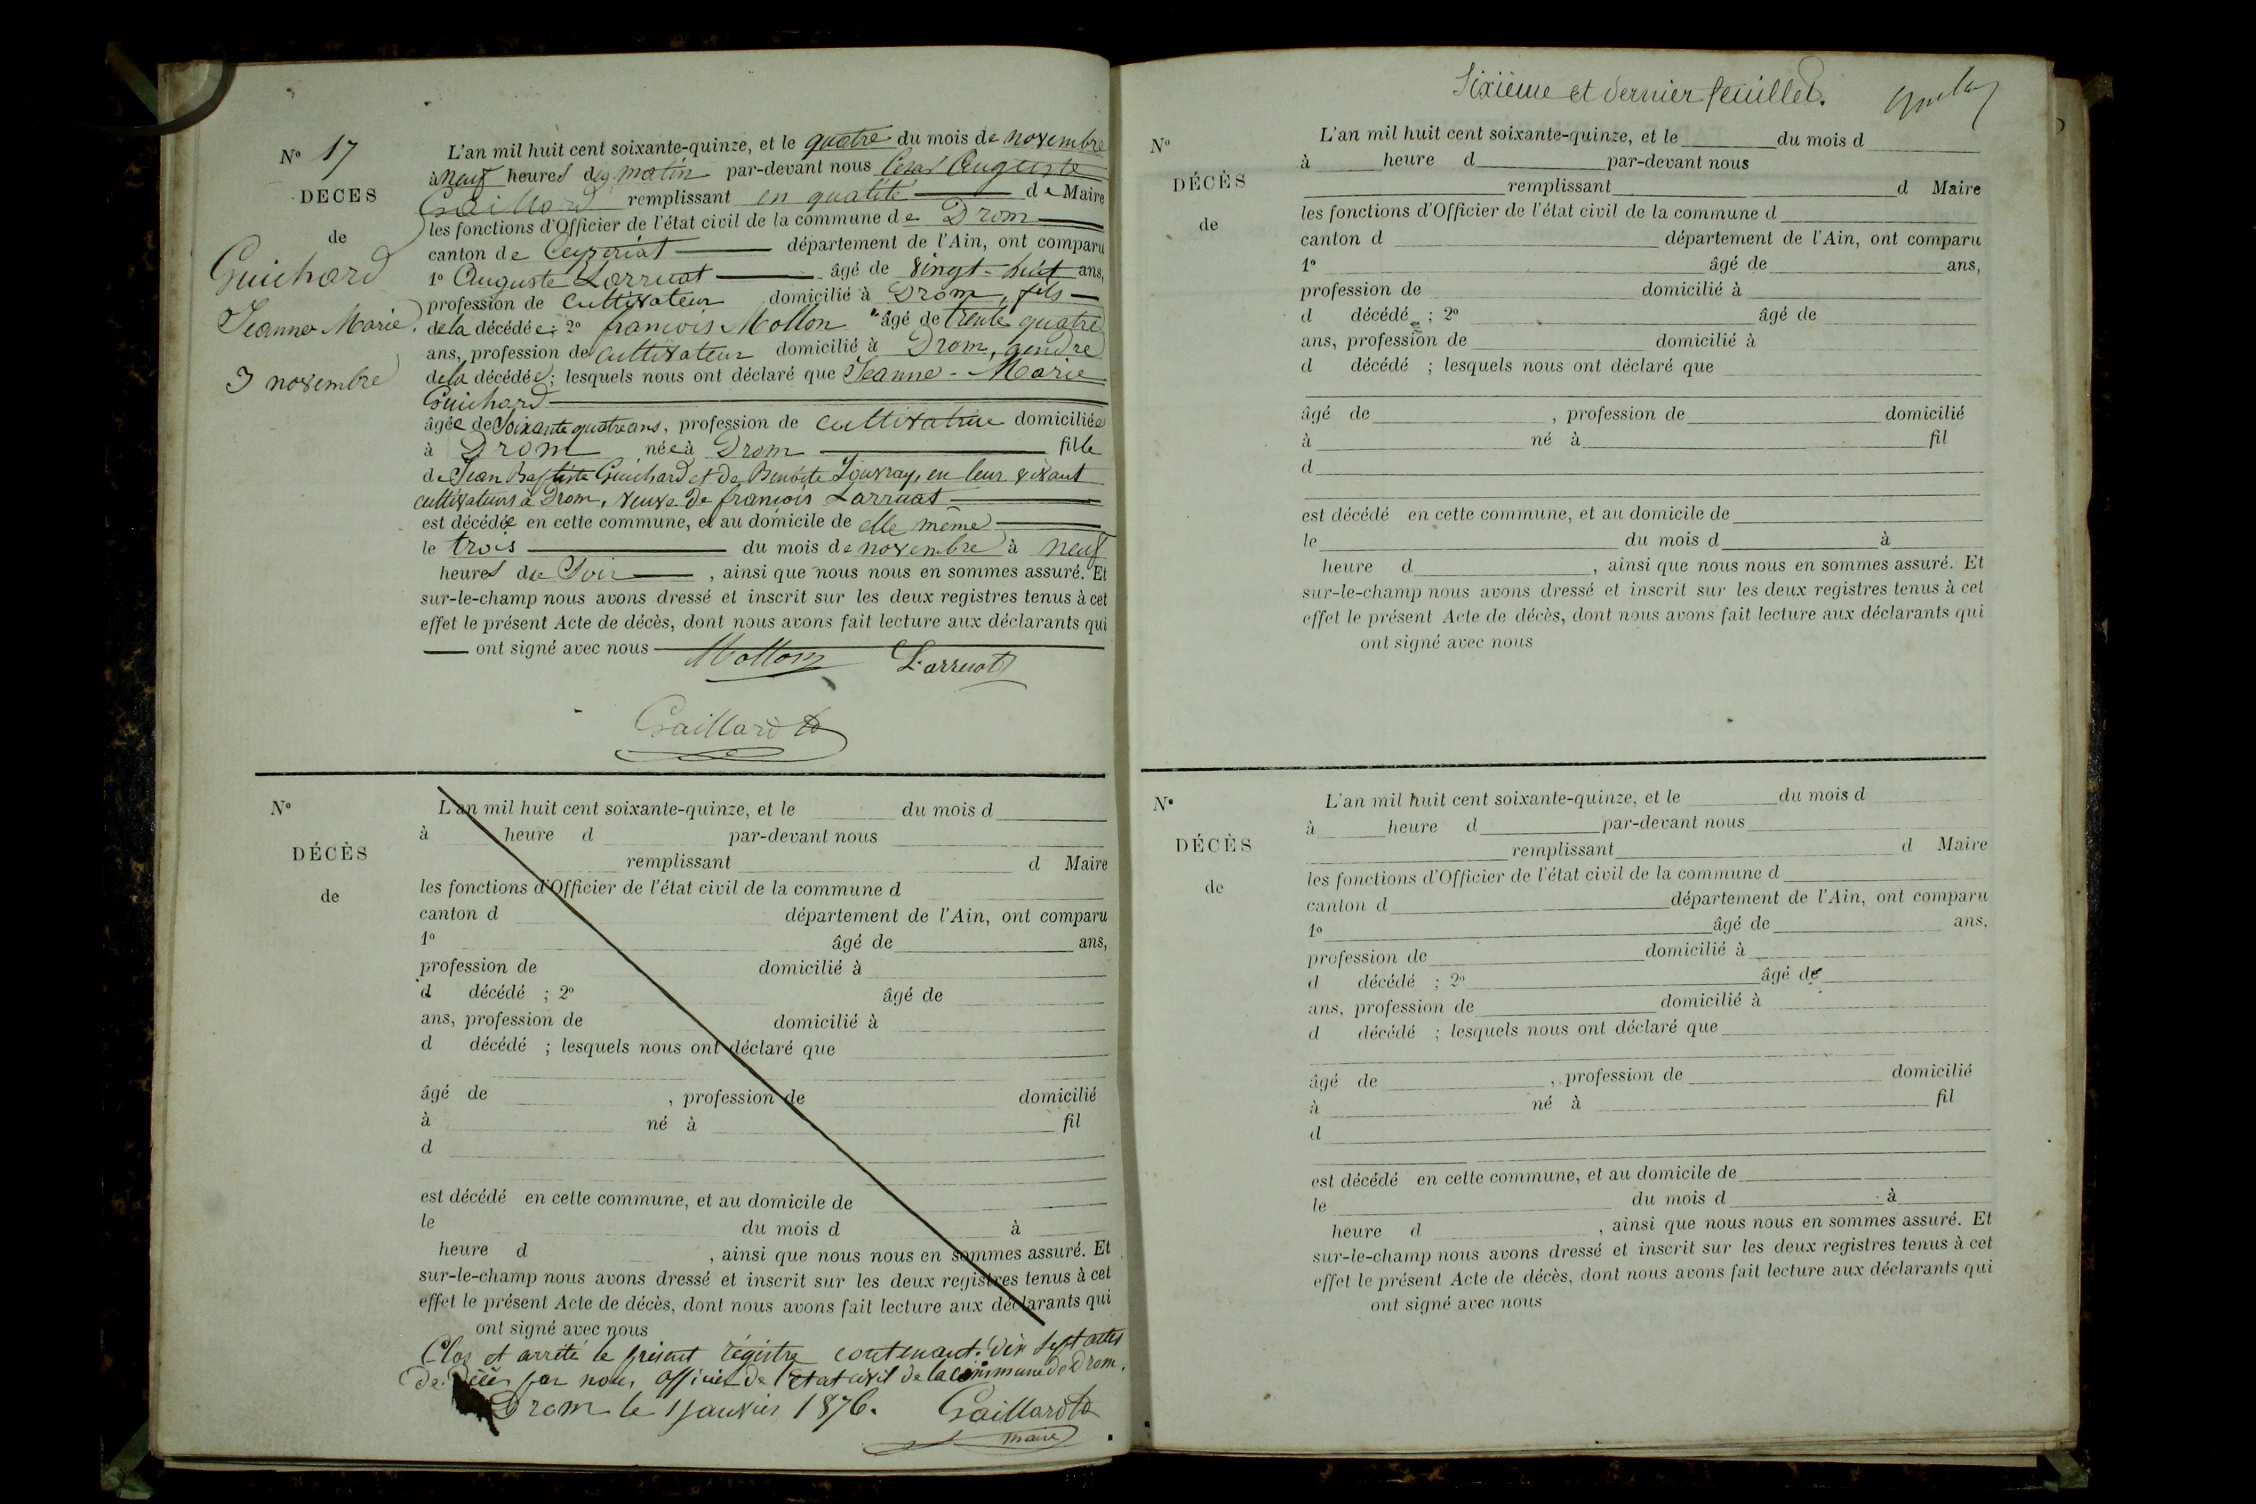 N° 17
DECES
de
Guichard
Jeanne Marie.
3 novembre
L'an mil huit cent soixante-quinze, et le quatre du mois de novembre
à neuf heures du matin par-devant nous César Auguste
Gaillard remplissant en qualité de Maire
les fonctions d'Officier de l'état civil de la commune de Drom
canton de Ceyzeriat département de l'Ain, ont comparu
1° Auguste Larruat âgé de vingt-huit ans,
profession de cultivateur domicilié à Drom, fils
de la décédée; 2° francois Mollon âgé de trente quatre
ans, profession de cultivateur domicilié à Drom, gendre
de la décédée; lesquels nous ont déclaré que Jeanne-Marie
Guichard
âgée de soixante quatre ans, profession de cultivatrice domiciliée
à Drom née à Drom fille
de Jean Baptiste Guichard et de Benoite Louvray, en leur vivant
cultivateurs à Drom, veuve de francois Larruat
est décédée en cette commune, et au domicile de elle même
le trois du mois de novembre à neuf
heures du Soir, ainsi que nous nous en sommes assuré. Et
sur-le-champ nous avons dressé et inscrit sur les deux registres tenus à cet
effet le présent Acte de décès, dont nous avons fait lecture aux déclarants qui
ont signé avec nous
Mollon Larruat
Gaillard
N°
DÉCÈS
de
L'an mil huit cent soixante-quinze, et le du mois d
à heure d par-devant nous
remplissant d Maire
les fonctions d'Officier de l'état civil de la commune d
canton d département de l'Ain, ont comparu
1° âgé de ans,
profession de domicilié à
d décédé ; 2° âgé de
ans, profession de domicilié à
d décédé ; lesquels nous ont déclaré que
âgé de , profession de domicilié
à né à fil
d
est décédé en cette commune, et au domicile de
le du mois d à
heure d , ainsi que nous nous en sommes assuré. Et
sur-le-champ nous avons dressé et inscrit sur les deux registres tenus à cet
effet le présent Acte de décès, dont nous avons fait lecture aux déclarants qui
ont signé avec nous
Clos et arrêté le présent régistre contenant dix sept actes
de Décès par nous officier de l'Etat civil de la commune de Drom.
Drom le 1 janvier 1876. Gaillard
maire
Sixième et dernier feuillet.
N°
DÉCÈS
de
L'an mil huit cent soixante-quinze, et le du mois d
à heure d par-devant nous
remplissant d Maire
les fonctions d'Officier de l'état civil de la commune d
canton d département de l'Ain, ont comparu
1° âgé de ans,
profession de domicilié à
d décédé ; 2° âgé de
ans, profession de domicilié à
d décédé ; lesquels nous ont déclaré que
âgé de , profession de domicilié
à né à fil
d
est décédé en cette commune, et au domicile de
le du mois d à
heure d , ainsi que nous nous en sommes assuré. Et
sur-le-champ nous avons dressé et inscrit sur les deux registres tenus à cet
effet le présent Acte de décès, dont nous avons fait lecture aux déclarants qui
ont signé avec nous
N°
DÉCÈS
de
L'an mil huit cent soixante-quinze, et le du mois d
à heure d par-devant nous
remplissant d Maire
les fonctions d'Officier de l'état civil de la commune d
canton d département de l'Ain, ont comparu
1° âgé de ans,
profession de domicilié à
d décédé ; 2° âgé de
ans, profession de domicilié à
d décédé ; lesquels nous ont déclaré que
âgé de , profession de domicilié
à né à fil
d
est décédé en cette commune, et au domicile de
le du mois d à
heure d , ainsi que nous nous en sommes assuré. Et
sur-le-champ nous avons dressé et inscrit sur les deux registres tenus à cet
effet le présent Acte de décès, dont nous avons fait lecture aux déclarants qui
ont signé avec nous